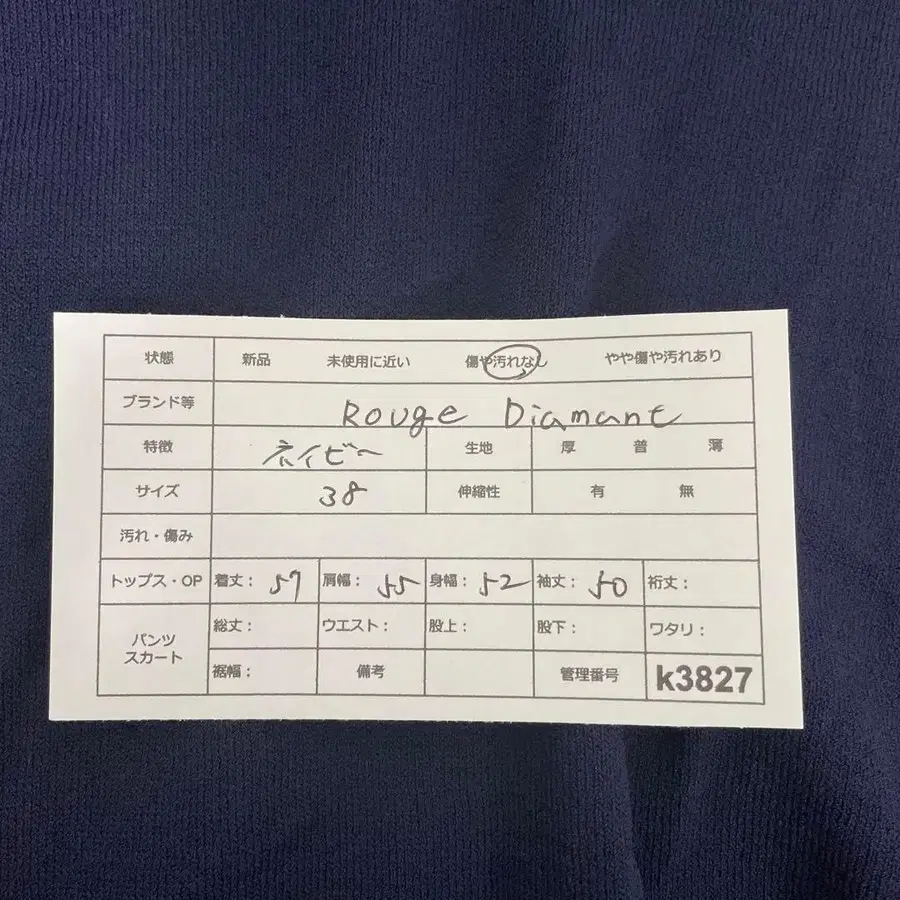 状態 新品 未使用に近い 傷や汚れなし やや傷や汚れあり
ブランド等 Rouge Diamant
特徴 ネイビー 生地 厚 普 薄
サイズ 38 伸縮性 有 無
汚れ・傷み
トップス・OP 着丈: 57 肩幅: 55 身幅: 52 袖丈: 50 裄丈:
パンツ スカート 総丈: ウエスト: 股上: 股下: ワタリ:
裾幅: 備考 管理番号 k3827